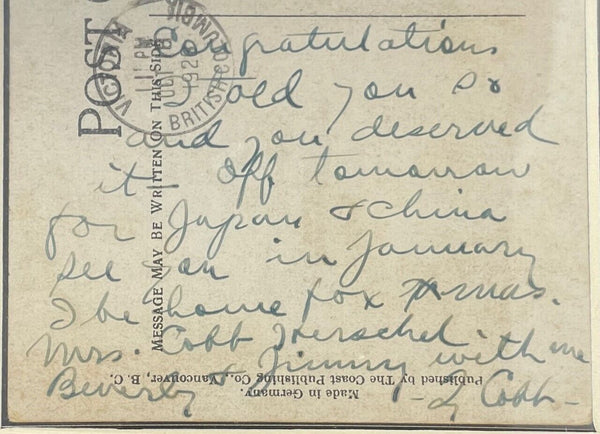 Congratulations
I told you so
and you deserved
it! Off tomorrow
for Japan & China
see you in January
I be home for Xmas.
Mrs. Cobb Herschel
Beverly & Jimmy with me
- Ty Cobb -
POST
MESSAGE MAY BE WRITTEN ON THIS SIDE
VICTORIA
PM
192
BRITISH COLUMBIA
Made in Germany.
Published by The Coast Publishing Co., Vancouver, B. C.